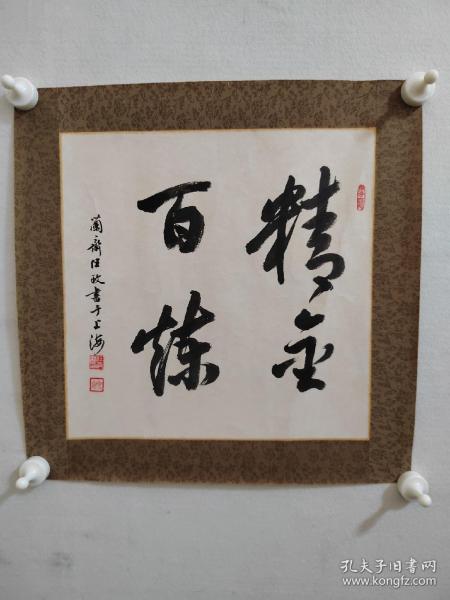 精金
百炼
蘭齋汪政書于上海
孔夫子旧书网
www.kongfz.com